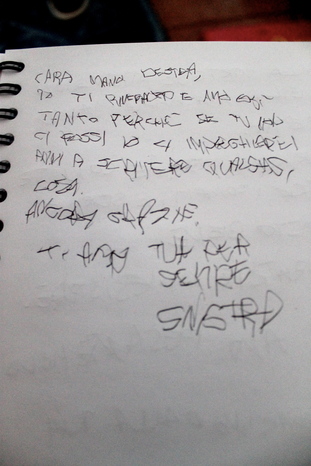 CARA MANO DESTRA,
IO TI RINGRAZIO E AMO OGNI
TANTO PERCHÉ SE TU NON
CI FOSSI IO CI IMPIEGHEREI
ANNI A SCRIVERE QUALCHE
COSA.
ANCORA GRAZIE.
TI AMO TUA PER
SEMPRE
SINISTRA